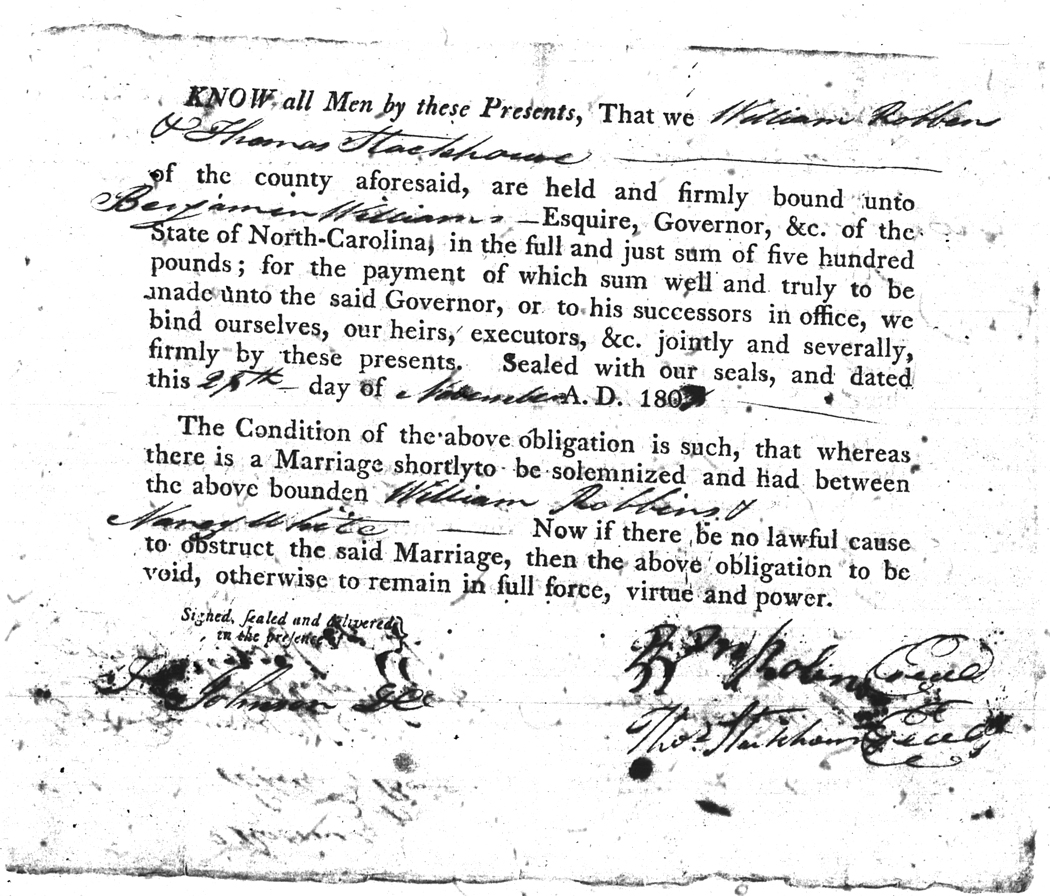 KNOW all Men by these Presents, That we William Robbens
& Thomas Stackhouse
of the county aforesaid, are held and firmly bound unto
Benjamen Williams — Esquire, Governor, &c. of the
State of North-Carolina, in the full and just sum of five hundred
pounds; for the payment of which sum well and truly to be
made unto the said Governor, or to his successors in office, we
bind ourselves, our heirs, executors, &c. jointly and severally,
firmly by these presents. Sealed with our seals, and dated
this day of November A. D. 180
The Condition of the above obligation is such, that whereas
there is a Marriage shortly to be solemnized and had between
the above bounden William Robbins &
Nancy White — Now if there be no lawful cause
to obstruct the said Marriage, then the above obligation to be
void, otherwise to remain in full force, virtue and power.
Signed, sealed and delivered
in the presence of
Johnson
Thos. Stackhouse